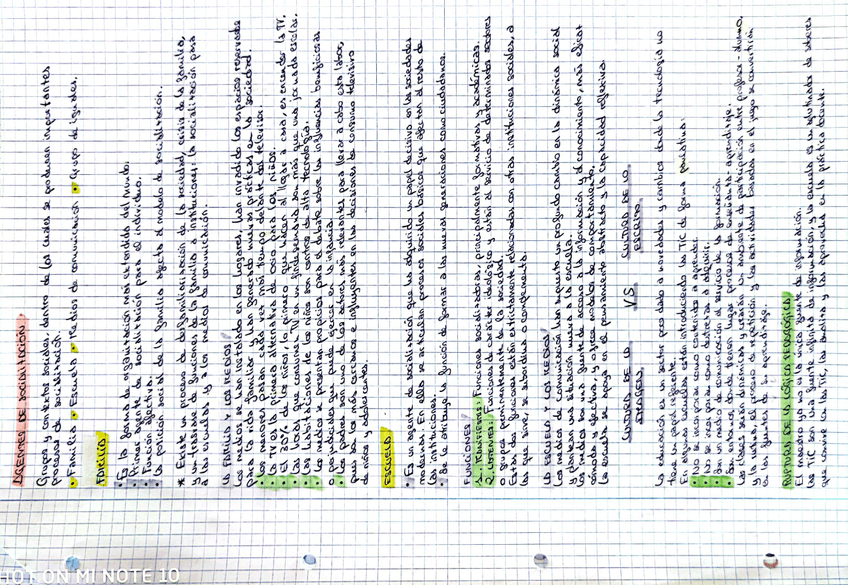 AGENTES DE SOCIALIZACIÓN.
Grupos y contextos sociales, dentro de los cuales se producen importantes
procesos de socialización.
• Familia • Escuela • Medios de comunicación • Grupo de iguales.
FAMILIA
• Es la forma de organización más extendida del mundo.
• Primer agente de socialización para el individuo.
• Función afectiva.
• La posición social de la familia afecta al modelo de socialización.
* Existe un proceso de desfamiliarización de la sociedad, crisis de la familia,
y un traspase de funciones de la familia a instituciones: la socialización pasa
a las escuelas y a los medios de comunicación.
LA FAMILIA Y LOS MEDIOS/
Los medios se han instalado en los hogares, han invadido los espacios reservados
para la vida familiar y han generado nuevas prácticas en la sociedad.
• Los menores pasan cada vez más tiempo delante del televisor.
• La TV es la primera alternativa de ocio para los niños.
• El 30% de los niños lo primero que hacen al llegar a casa, es encender la TV.
• Las horas que consumen TV en un fin de semana son más que una jornada escolar.
• Las habitaciones de los niños son centros de alta tecnología.
• Los medios se presentan propicios para el debate sobre las influencias beneficiosas
o perjudiciales que puede ejercer en la infancia.
• Los padres son uno de los actores más relevantes para llevar a cabo esta labor,
pues son los más cercanos e influyentes en las decisiones de consumo televisivo
de niños y adolescentes.
ESCUELA
• Es un agente de socialización que ha adquirido un papel decisivo en las sociedades
modernas. En ella se articulan procesos sociales básicos que afectan al resto de
las instituciones.
• Se le atribuye la función de formar a las nuevas generaciones como ciudadanos.
FUNCIONES/
1. MANIFIESTAS: Funciones socializadoras, principalmente formativas y académicas.
2. LATENTES: Funciones de carácter ideológico y están al servicio de determinados sectores
o grupos dominantes de la sociedad.
Estas dos funciones están estrictamente relacionadas con otras instituciones sociales, a
las que sirve, se subordina o complementa.
LA ESCUELA Y LOS MEDIOS/
Los medios de comunicación han supuesto un profundo cambio en la dinámica social
y plantean una situación nueva a la escuela.
Los medios son una fuente de acceso a la información y al conocimiento, más eficaz
cómoda y efectiva, y ofrece modelos de comportamiento.
La escuela se apoya en el pensamiento abstracto y la capacidad reflexiva.
CULTURA DE LA IMAGEN VS CULTURA DE LO ESCRITO
La educación es un sector poco dado a novedades y cambios donde la tecnología no
ha conseguido
En algunas escuelas están introduciendo las TIC de forma paulatina:
• No se incorporan como contenidos a aprender.
• No se incorporan como destreza a adquirir.
• Son un medio de comunicación al servicio de la formación.
• Son entornos donde tienen lugar procesos de enseñanza-aprendizaje.
Las clases serán dinámicas y estarán en ambiente de participación entre profesor-alumno,
y la rutina, el proceso de repetición y las actividades basadas en el juego se convertirán
en las fuentes de su aprendizaje.
RUPTURA DE LA LÓGICA PEDAGÓGICA/
El maestro ya no es la única fuente de información.
Las TIC son una fuente infinita de información, y la escuela es un entramado de saberes
que convive con las TIC, las analiza y las aprovecha en la práctica docente.
HOT ON MI NOTE 10